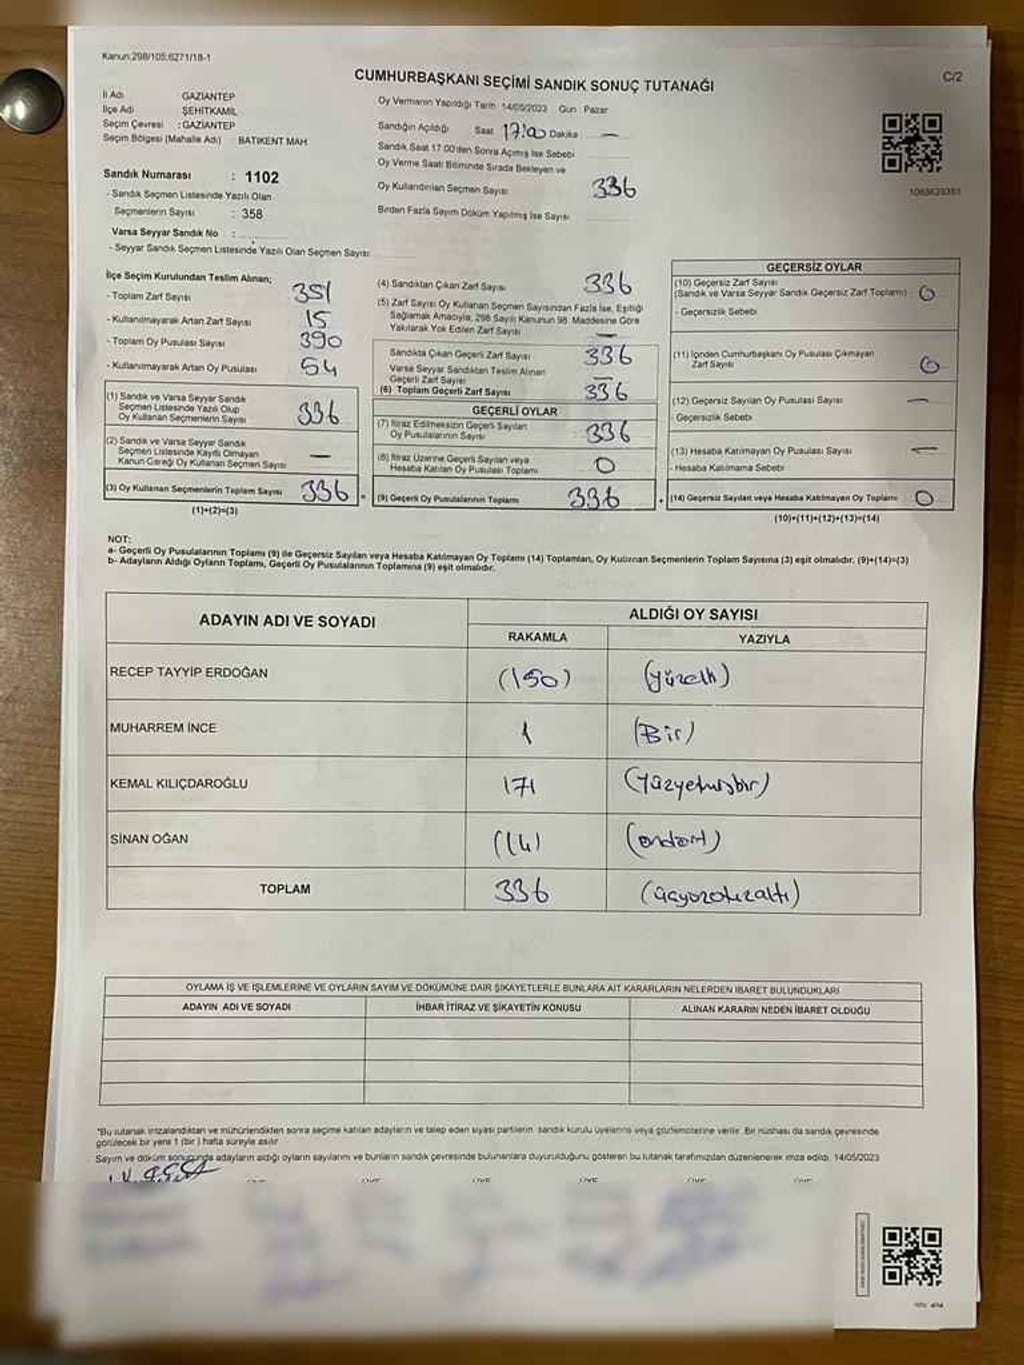 Kanun:298/105.6271/18-1
CUMHURBAŞKANI SEÇİMİ SANDIK SONUÇ TUTANAĞI
C/2
İl Adı GAZİANTEP
İlçe Adı ŞEHİTKAMİL
Seçim Çevresi : GAZİANTEP
Seçim Bölgesi (Mahalle Adı) BATIKENT MAH
Sandık Numarası : 1102
- Sandık Seçmen Listesinde Yazılı Olan
Seçmenlerin Sayısı : 358
Varsa Seyyar Sandık No :
- Seyyar Sandık Seçmen Listesinde Yazılı Olan Seçmen Sayısı
Oy Vermenin Yapıldığı Tarih 14/05/2023 Gün : Pazar
Sandığın Açıldığı Saat 17:00 Dakika —
Sandık Saat 17:00'den Sonra Açılmış İse Sebebi
Oy Verme Saati Bitiminde Sırada Bekleyen ve
Oy Kullandırılan Seçmen Sayısı 336
Birden Fazla Sayım Döküm Yapılmış İse Sayısı
1063629351
İlçe Seçim Kurulundan Teslim Alınan;
- Toplam Zarf Sayısı 351
- Kullanılmayarak Artan Zarf Sayısı 15
- Toplam Oy Pusulası Sayısı 390
- Kullanılmayarak Artan Oy Pusulası 54
(1) Sandık ve Varsa Seyyar Sandık
Seçmen Listesinde Yazılı Olup
Oy Kullanan Seçmenlerin Sayısı 336
(2) Sandık ve Varsa Seyyar Sandık
Seçmen Listesinde Kayıtlı Olmayan
Kanun Gereği Oy Kullanan Seçmen Sayısı —
(3) Oy Kullanan Seçmenlerin Toplam Sayısı 336 =
(1)+(2)=(3)
(4) Sandıktan Çıkan Zarf Sayısı 336
(5) Zarf Sayısı Oy Kullanan Seçmen Sayısından Fazla İse, Eşitliği
Sağlamak Amacıyla, 298 Sayılı Kanunun 98. Maddesine Göre
Yakılarak Yok Edilen Zarf Sayısı —
Sandıkta Çıkan Geçerli Zarf Sayısı 336
Varsa Seyyar Sandıktan Teslim Alınan
Geçerli Zarf Sayısı —
(6) Toplam Geçerli Zarf Sayısı 336
GEÇERLİ OYLAR
(7) İtiraz Edilmeksizin Geçerli Sayılan
Oy Pusulalarının Sayısı 336
(8) İtiraz Üzerine Geçerli Sayılan veya
Hesaba Katılan Oy Pusulası Toplamı 0
(9) Geçerli Oy Pusulalarının Toplamı 336 +
GEÇERSİZ OYLAR
(10) Geçersiz Zarf Sayısı
(Sandık ve Varsa Seyyar Sandık Geçersiz Zarf Toplamı) 0
- Geçersizlik Sebebi
(11) İçinden Cumhurbaşkanı Oy Pusulası Çıkmayan
Zarf Sayısı 0
(12) Geçersiz Sayılan Oy Pusulası Sayısı —
- Geçersizlik Sebebi
(13) Hesaba Katılmayan Oy Pusulası Sayısı —
- Hesaba Katılmama Sebebi
(14) Geçersiz Sayılan veya Hesaba Katılmayan Oy Toplamı 0
(10)+(11)+(12)+(13)=(14)
NOT:
a- Geçerli Oy Pusulalarının Toplamı (9) ile Geçersiz Sayılan veya Hesaba Katılmayan Oy Toplamı (14) Toplamları, Oy Kullanan Seçmenlerin Toplam Sayısına (3) eşit olmalıdır. (9)+(14)=(3)
b- Adayların Aldığı Oyların Toplamı, Geçerli Oy Pusulalarının Toplamına (9) eşit olmalıdır.
ADAYIN ADI VE SOYADI ALDIĞI OY SAYISI
RAKAMLA YAZIYLA
RECEP TAYYİP ERDOĞAN (150) (yüzelli)
MUHARREM İNCE 1 (Bir)
KEMAL KILIÇDAROĞLU 171 (Yüzyetmişbir)
SİNAN OĞAN (14) (ondört)
TOPLAM 336 (üçyüzotuzaltı)
OYLAMA İŞ VE İŞLEMLERİNE VE OYLARIN SAYIM VE DÖKÜMÜNE DAİR ŞİKAYETLERLE BUNLARA AİT KARARLARIN NELERDEN İBARET BULUNDUKLARI
ADAYIN ADI VE SOYADI İHBAR İTİRAZ VE ŞİKAYETİN KONUSU ALINAN KARARIN NEDEN İBARET OLDUĞU
*Bu tutanak imzalandıktan ve mühürlendikten sonra seçime katılan adayların ve talep eden siyasi partilerin sandık kurulu üyelerine veya gözlemcilerine verilir. Bir nüshası da sandık çevresinde
görülecek bir yere 1 (bir) hafta süreyle asılır.
Sayım ve döküm sonucunda adayların aldığı oyların sayılarını ve bunların sandık çevresinde bulunanlara duyurulduğunu gösteren bu tutanak tarafımızdan düzenlenerek imza edildi. 14/05/2023